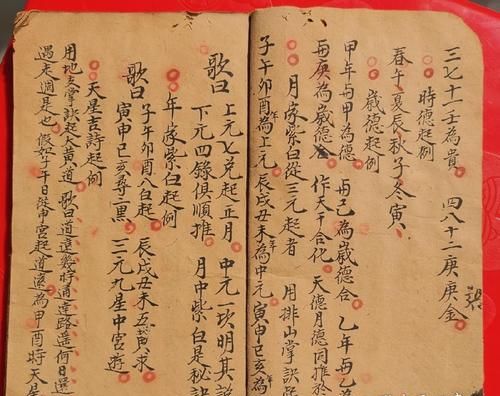 三七十一壬為貴 四八十二庚庚金
時德起例
春午夏辰秋子冬寅
歲德起例
甲年与甲為德 再己為歲德合 乙年与乙為
再庚為歲德合 作天干合化 天德月德同推於
月家紫白從三元起者 用排山掌訣
子午卯酉年為上元 辰戌丑未年為中元 寅申巳亥為
歌曰 上元七兌起正月 中元一坎明其說
下元四錄俱順推 月中紫白是秘訣
年家紫白起例
歌曰 子午卯酉八白起 辰戌丑未五黃求
寅申巳亥尋二黑 三元九星中宮遊
天星吉詩起例
用地支掌訣起天黃道 歌曰道遠幾時通達路遥何日還
遇走週是也 假如子午日從申宮起道遠為甲酉時天星